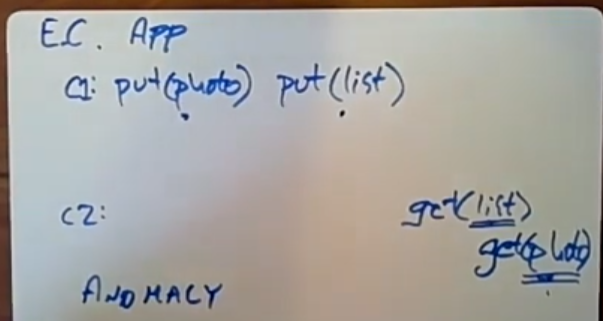 E.C. APP
C1: put(photo) put(list)
C2: get(list)
get(photo)
ANOMALY